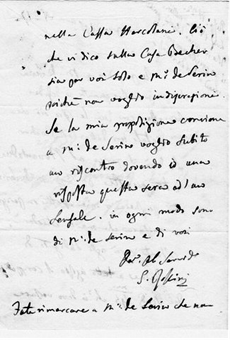 nella Cassa Marcolani. Ciò
che vi dico sulla Casa Becher
sia per voi solo e m.r de Serino
poichè non voglio indiscrezione
Se la mia proposizione conviene
a m.r de Serino voglio subito
un riscontro dovendo io una
risposta questa sera ad un
Sensale. in ogni modo sono
di m.r de Serino e di voi
G. Rossini
Fate rimarcare a m.r de Serino che non